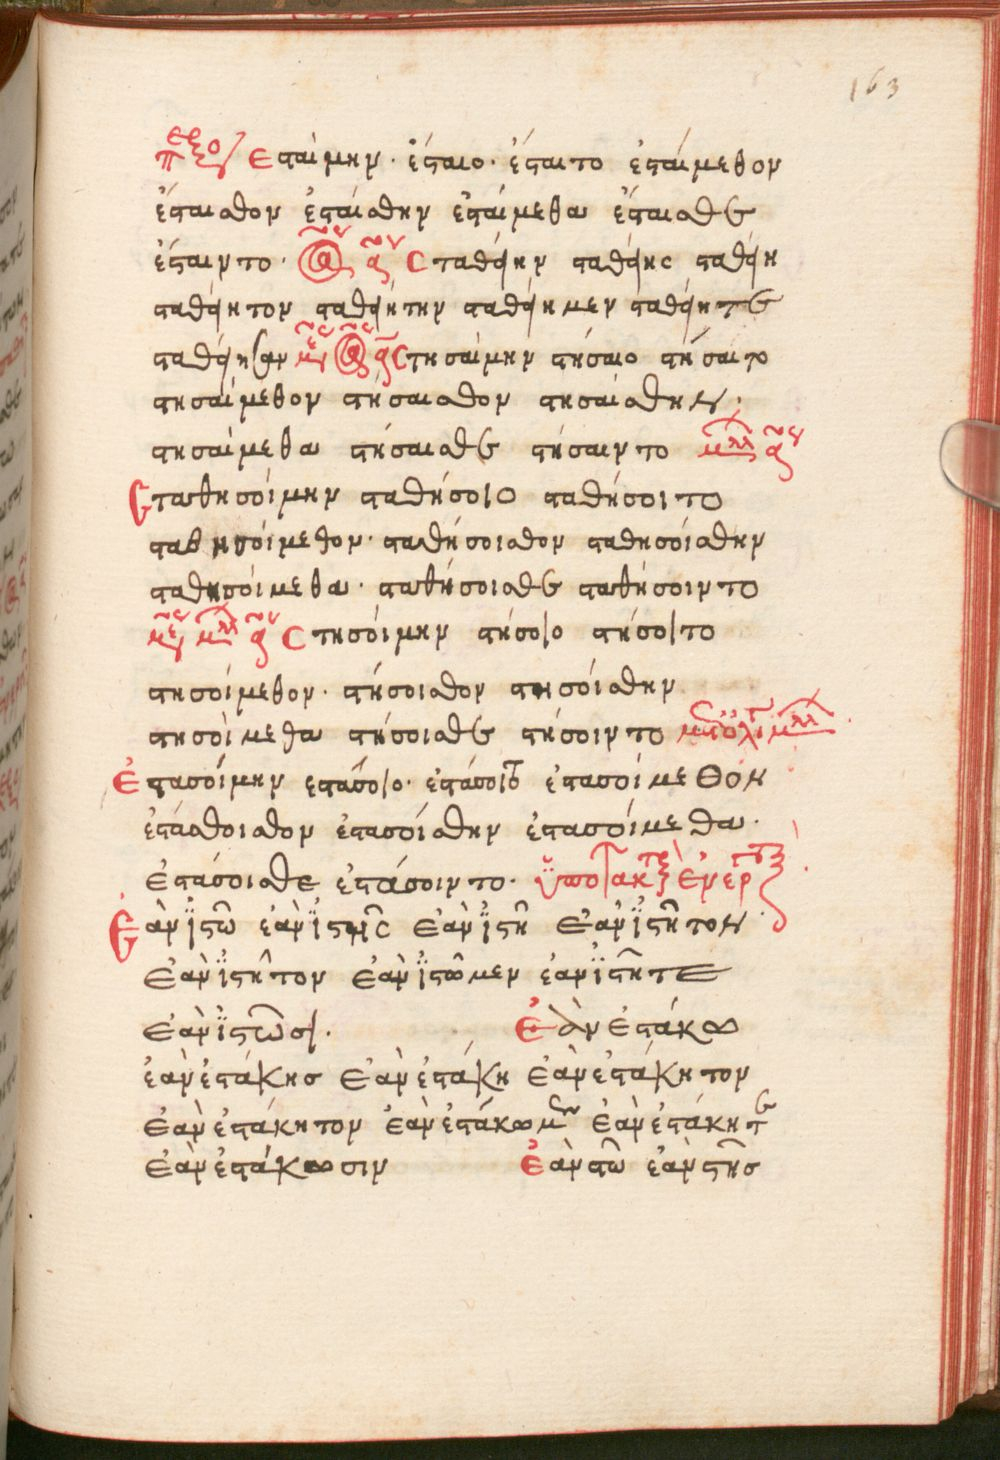 163
ἑσταίμην· ἕσταιο· ἕσταιτο ἑσταίμεθον
ἕσταισθον ἑσταίσθην ἑσταίμεθα ἕσταισθε
ἕσταιντο· σταθείην σταθείης σταθείη
σταθείητον σταθειήτην σταθείημεν σταθείητε
σταθείησαν στησαίμην στήσαιο στήσαιτο
στησαίμεθον στήσαισθον στησαίσθην·
στησαίμεθα στήσαισθε στήσαιντο
Σταθησοίμην σταθήσοιο σταθήσοιτο
σταθησοίμεθον· σταθήσοισθον σταθησοίσθην
σταθησοίμεθα· σταθήσοισθε σταθήσοιντο
στησοίμην στήσοιο στήσοιτο
στησοίμεθον· στήσοισθον στησοίσθην
στησοίμεθα στήσοισθε στήσοιντο
Ἑστασοίμην ἑστάσοιο· ἑστάσοιτο ἑστασοίμεθον
ἑστάσθοισθον ἑστασοίσθην ἑστασοίμεθα·
ἑστάσοισθε ἑστάσοιντο·
Ἐὰν ἱστῶ ἐὰν ἱστῇς ἐὰν ἱστῇ ἐὰν ἱστῆτον
ἐὰν ἱστῆτον ἐὰν ἱστῶμεν ἐὰν ἱστῆτε
ἐὰν ἱστῶσι. Ἐὰν ἑστάκω
ἐὰν ἑστάκης ἐὰν ἑστάκη ἐὰν ἑστάκητον
ἐὰν ἑστάκητον ἐὰν ἑστάκωμεν ἐὰν ἑστάκητε
ἐὰν ἑστάκωσιν Ἐὰν στῶ ἐὰν στῇς